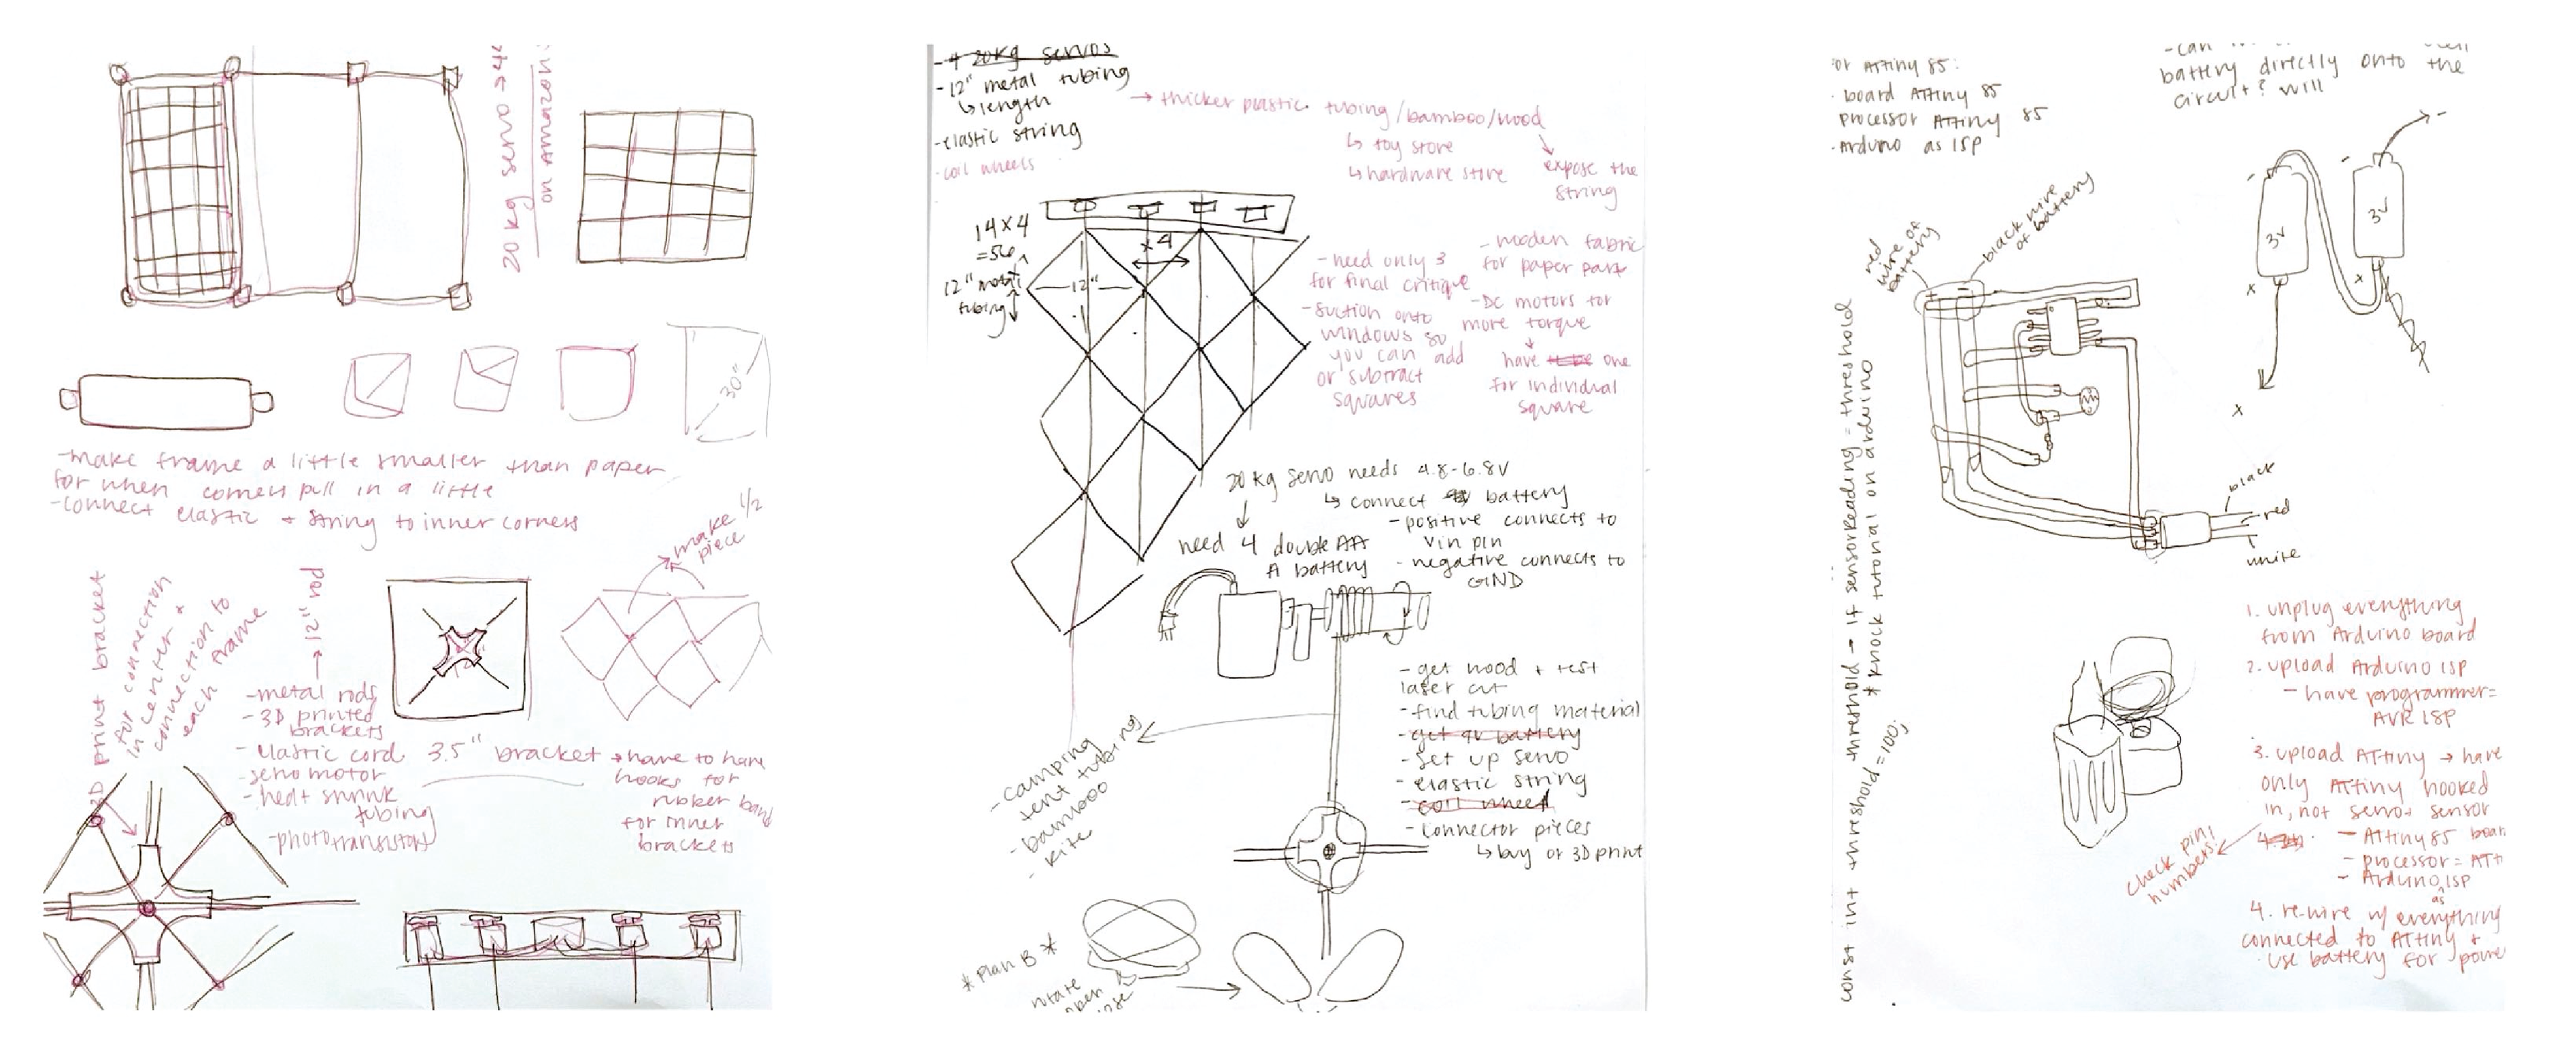 20 kg servo → 4
on Amazon:
30"
-make frame a little smaller than paper
for when corners pull in a little
-connect elastic + string to inner corners
make 1/2
piece
3D print bracket
for connection
in center +
connection to
each frame
→ 12" rod
-metal rods
-3D printed
brackets
-elastic cord
-servo motor
-heat shrink
tubing
-phototransistors
3.5" bracket → have to have
hooks for
rubber band
for inner
brackets
-4 20kg servos
-12" metal tubing
↳ length
-elastic string
-coil wheels
→ thicker plastic tubing/bamboo/wood
↳ toy store
↳ hardware store
expose the
string
14x4
=56
12" metal
tubing
x4
12"
-need only 3
for final critique
-suction onto
windows so
you can add
or subtract
squares
-wooden fabric
for paper part
-DC motors for
more torque
have one
for individual
square
20 kg servo needs 4.8-6.8V
↳ connect battery
-positive connects to
Vin pin
-negative connects to
GND
need 4 double AA
A battery
-get wood + test
laser cut
-find tubing material
-get 9v battery
-set up servo
-elastic string
-coil wheel
-connector pieces
↳ buy or 3D print
-camping
tent tubing
-bamboo
-kite
*Plan B*
rotate
open
for ATtiny 85:
·board ATtiny 85
processor ATtiny 85
·Arduino as ISP
-can
battery directly onto the
circuit? will
3V
3V
red
wire of
battery
black wire
of battery
black
red
white
const int threshold = 100;
threshold → if sensorReading = threshold
*knock tutorial on arduino
1. unplug everything
from Arduino board
2. upload Arduino ISP
- have programmer=
AVR ISP
3. upload ATtiny → have
only ATtiny hooked
in, not servo + sensor
check pin
numbers!
- ATtiny85 boar
- processor = ATt
- Arduino as ISP
4. re-wire w/ everything
connected to ATtiny +
use battery for powe